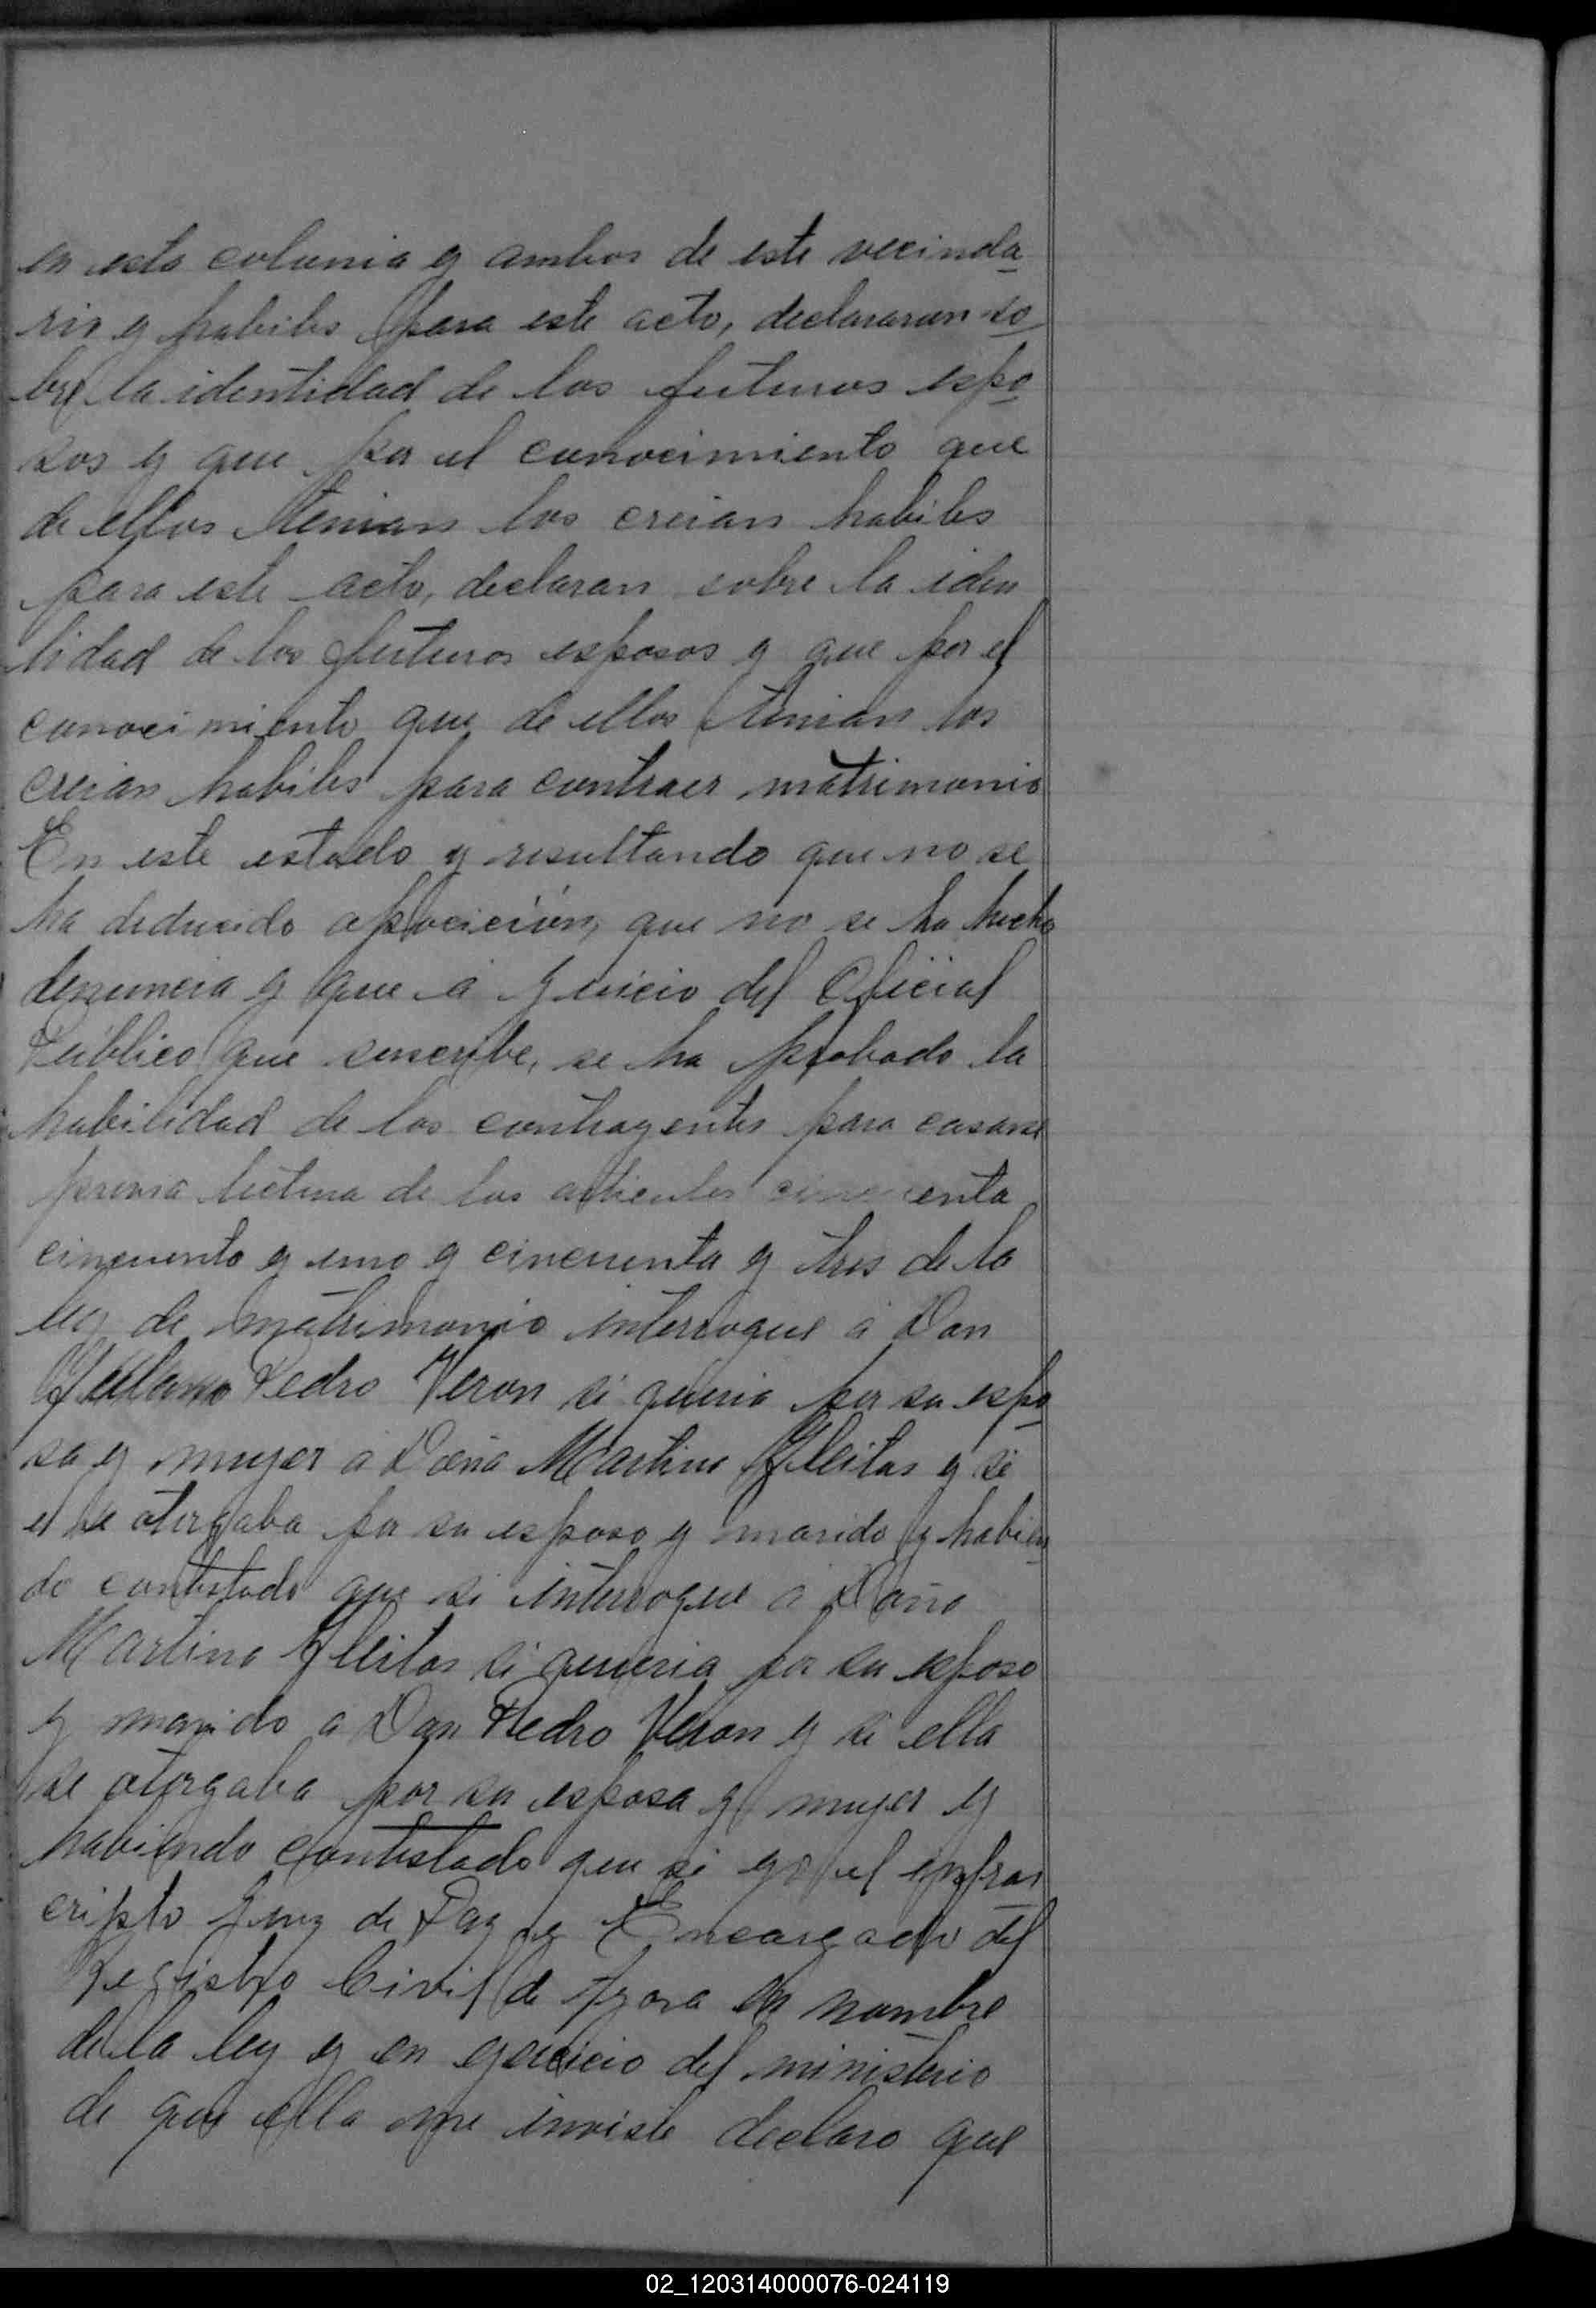 en esta colonia y ambos de este vecinda-
rio y habiles para este acto, declararan so-
bre la identidad de los futuros espo-
sos y que por el conocimiento que
de ellos tenian los creian habiles
para este acto, declaran sobre la iden
tidad de los futuros esposos y que por el
conocimiento que de ellos tenian los
creian habiles para contraer matrimonio
En este estado y resultando que no se
ha deducido oposición, que no se ha hecho
denuncia y que á juicio del Oficial
Público que suscribe, se ha probado la
habilidad de los contrayentes para casarse
previa lectura de los articulos cincuenta
cincuenta y uno y cincuenta y tres de la
ley de matrimonio interrogue á Don
Pedro Veron si queria por su espo-
sa y mujer a Doña Martina Fleitas y si
el se otorgaba por su esposo y marido y habien-
do contestado que si interrogue a Doña
Martina Fleitas si queria por su esposo
y marido a Don Pedro Veron y si ella
se otorgaba por su esposa y mujer y
habiendo contestado que si yo el infras
cripto Juez de Paz y Encargado del
Registro Civil de en nombre
de la ley y en ejercicio del ministerio
de que ella me inviste declaro que
02_120314000076-024119